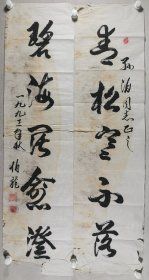 青松寒不落
孙泊同志正之
碧海阔愈澄
一九九三年秋